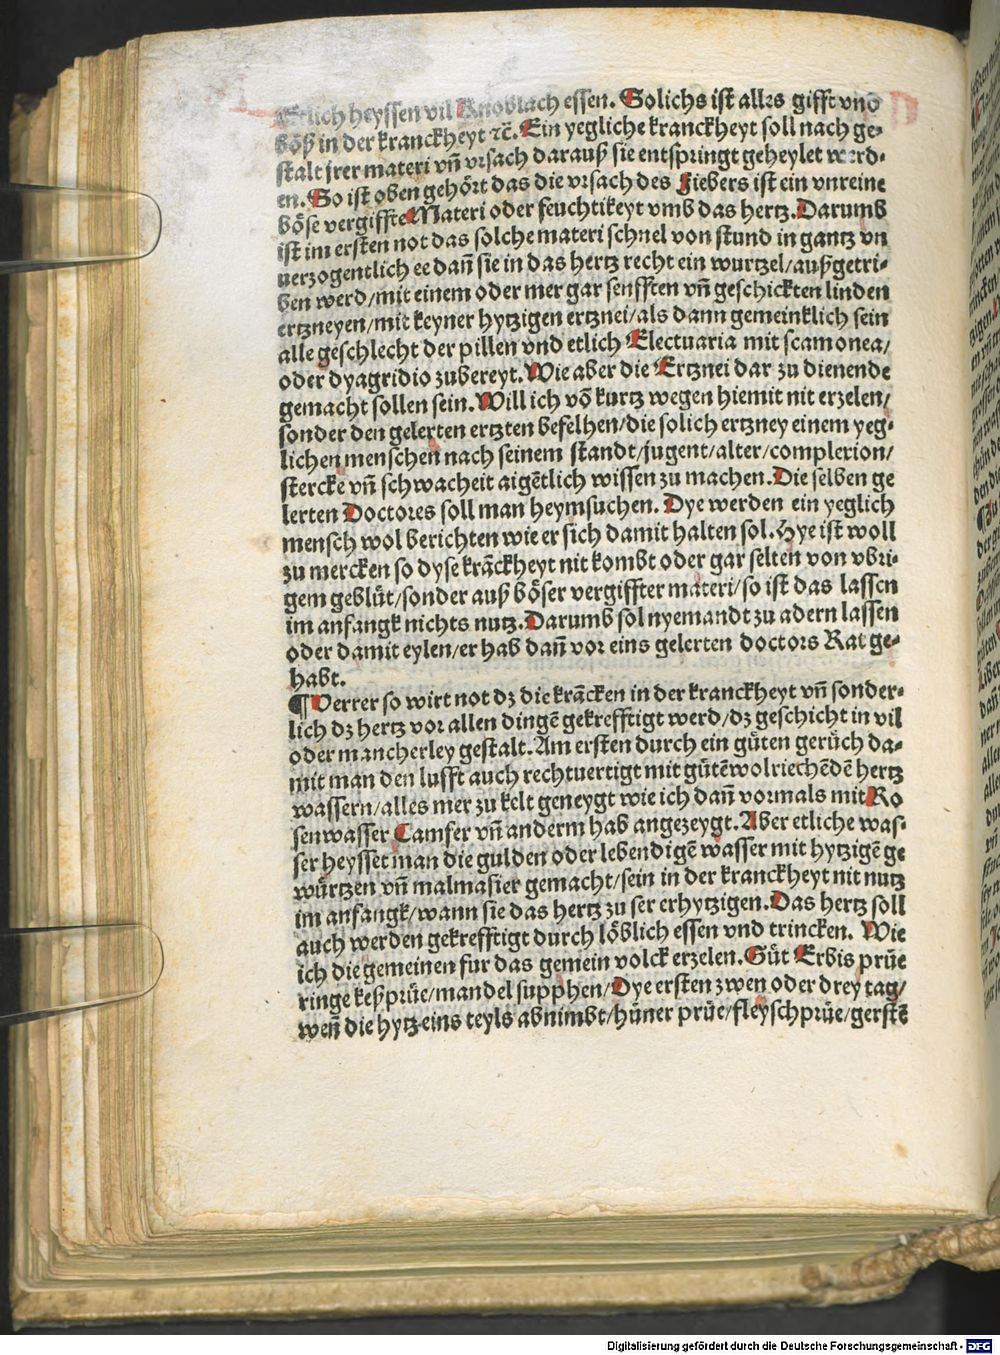 Etlich heyssen vil Knoblach essen. Solichs ist alles gifft vnd
böß in der kranckheyt ⁊c̃. Ein yegliche kranckheyt soll nach ge⸗
stalt jrer materi vñ vrsach darauß sie entspringt geheylet werd⸗
en. So ist oben gehört das die vrsach des Fiebers ist ein vnreine
böse vergiffte Materi oder feuchtikeyt vmb das hertz. Darumb
ist im ersten not das solche materi schnel von stund in gantz vn
uerzogentlich ee dañ sie in das hertz recht ein wurtzel/außgetri⸗
ben werd/mit einem oder mer gar senfften vñ geschickten linden
ertzneyen/mit keyner hytzigen ertznei/als dann gemeinklich sein
alle geschlecht der pillen vnd etlich Electuaria mit scamonea/
oder dyagridio zubereyt. Wie aber die Ertznei dar zu dienende
gemacht sollen sein. Will ich võ kurtz wegen hiemit nit erzelen/
sonder den gelerten ertzten befelhen/die solich ertzney einem yeg⸗
lichen menschen nach seinem standt/jugent/alter/complexion/
stercke vñ schwacheit aigẽtlich wissen zu machen. Die selben ge
lerten Doctores soll man heymsuchen. Dye werden ein yeglich
mensch wol berichten wie er sich damit halten sol. Hye ist woll
zu mercken so dyse krãckheyt nit kombt oder gar selten von vbri⸗
gem geblüt/sonder auß böser vergiffter materi/so ist das lassen
im anfangk nichts nutz. Darumb sol nyemandt zu adern lassen
oder damit eylen/er hab dañ vor eins gelerten doctors Rat ge⸗
habt.
¶ Verrer so wirt not dz die krãcken in der kranckheyt vñ sonder⸗
lich dz hertz vor allen dingẽ gekrefftigt werd/dz geschicht in vil
oder mancherley gestalt. Am ersten durch ein güten gerüch da⸗
mit man den lufft auch rechtuertigt mit gütẽ wolriechẽdẽ hertz
wassern/alles mer zu kelt geneygt wie ich dañ vormals mit Ro
senwasser Camfer vñ anderm hab angezeygt. Aber etliche was⸗
ser heysset man die gulden oder lebendigẽ wasser mit hytzigẽ ge
würtzen vñ malmasier gemacht/sein in der kranckheyt nit nutz
im anfangk/wann sie das hertz zu ser erhytzigen. Das hertz soll
auch werden gekrefftigt durch löblich essen vnd trincken. Wie
ich die gemeinen fur das gemein volck erzelen. Güt Erbis prüe
ringe keßprüe/mandel supphen/Dye ersten zwen oder drey tag/
weñ die hytz eins teyls abnimbt/hüner prüe/fleyschprüe/gerstẽ
Digitalisierung gefördert durch die Deutsche Forschungsgemeinschaft - DFG